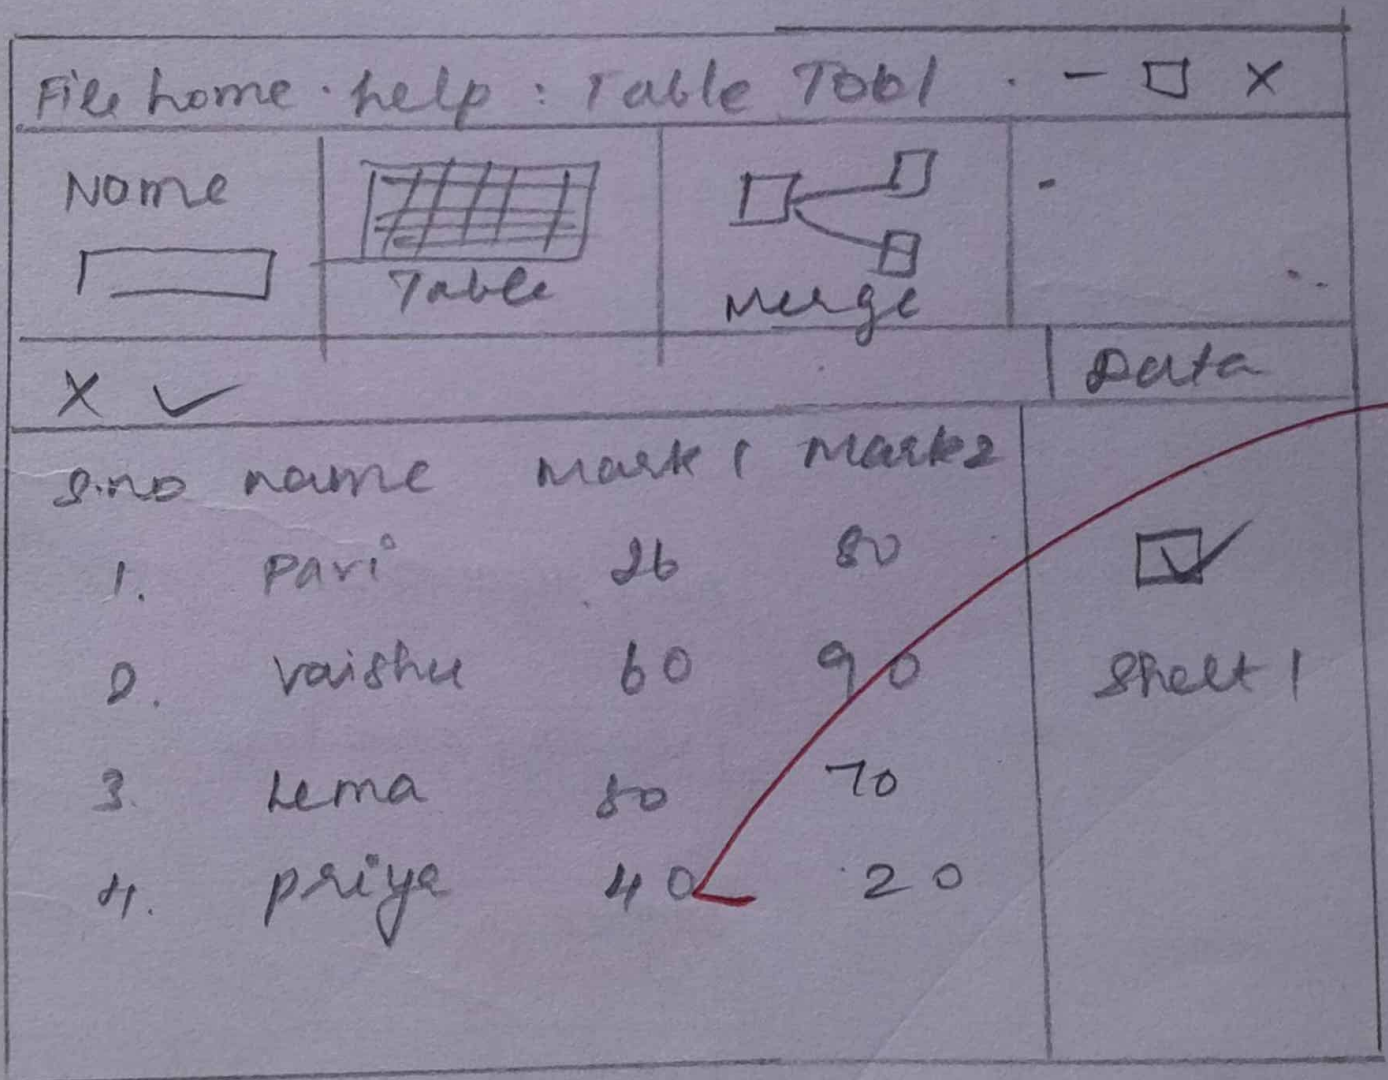 File home . help : Table Tool . - □ X
Name
Table
Merge
X ✓
Data
S.no name mark 1 mark 2
1. pari 26 80
2. vaishu 60 90
3. Lema 80 70
4. priya 40 20
Sheet 1